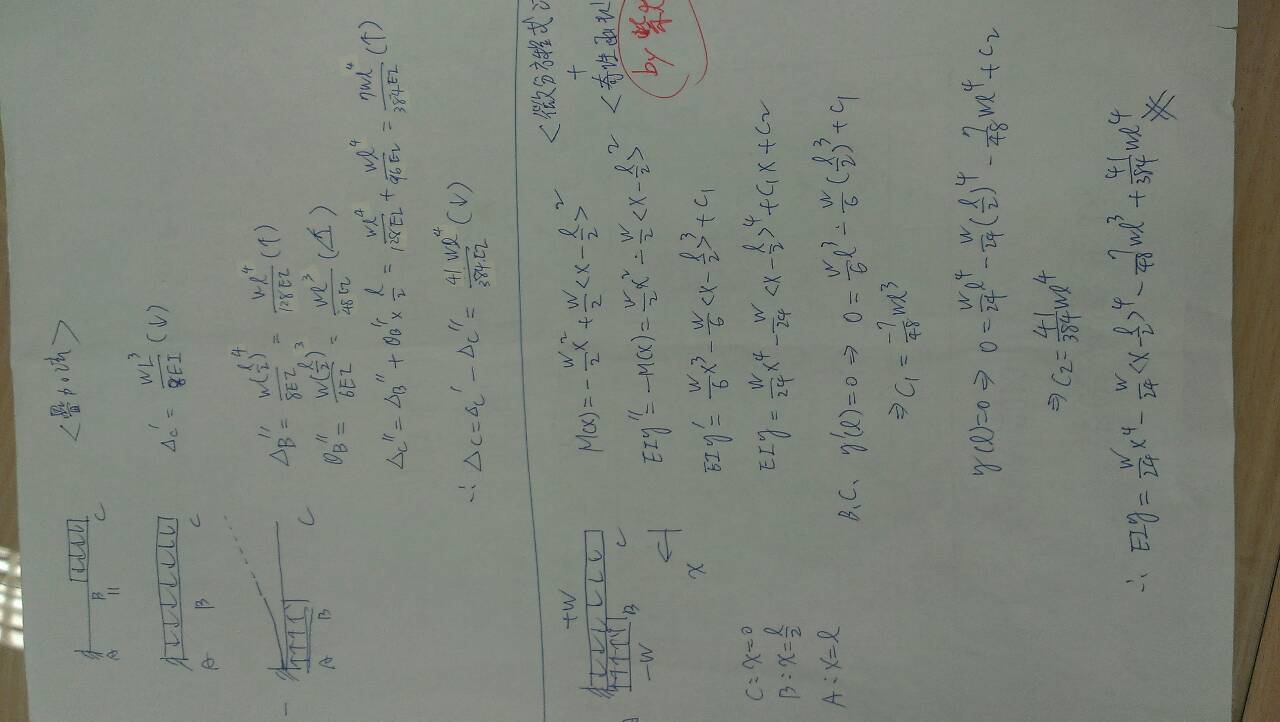 <疊加法>
A
B
C
Δc' = wL³/8EI (↓)
A
B
C
A
B
C
ΔB'' = w(l/2)⁴/8EI = wl⁴/128EI (↑)
θB'' = w(l/2)³/6EI = wl³/48EI
Δc'' = ΔB'' + θB'' × l/2 = wl⁴/128EI + wl⁴/96EI = 7wl⁴/384EI (↑)
∴ Δc = Δc' - Δc'' = 41wl⁴/384EI (↓)
<微分方程式
+
<奇性函
by
+w
-w
B
C
x
C: x=0
B: x=l/2
A: x=l
M(x) = -w/2 x² + w/2 <x - l/2>²
EIy'' = -M(x) = w/2 x² - w/2 <x - l/2>²
EIy' = w/6 x³ - w/6 <x - l/2>³ + C₁
EIy = w/24 x⁴ - w/24 <x - l/2>⁴ + C₁x + C₂
B.C. y'(l)=0 ⇒ 0 = w/6 l³ - w/6 (l/2)³ + C₁
⇒ C₁ = -7/48 wl³
y(l)=0 ⇒ 0 = w/24 l⁴ - w/24 (l/2)⁴ - 7/48 wl⁴ + C₂
⇒ C₂ = 41/384 wl⁴
∴ EIy = w/24 x⁴ - w/24 <x - l/2>⁴ - 7/48 wl³ + 41/384 wl⁴